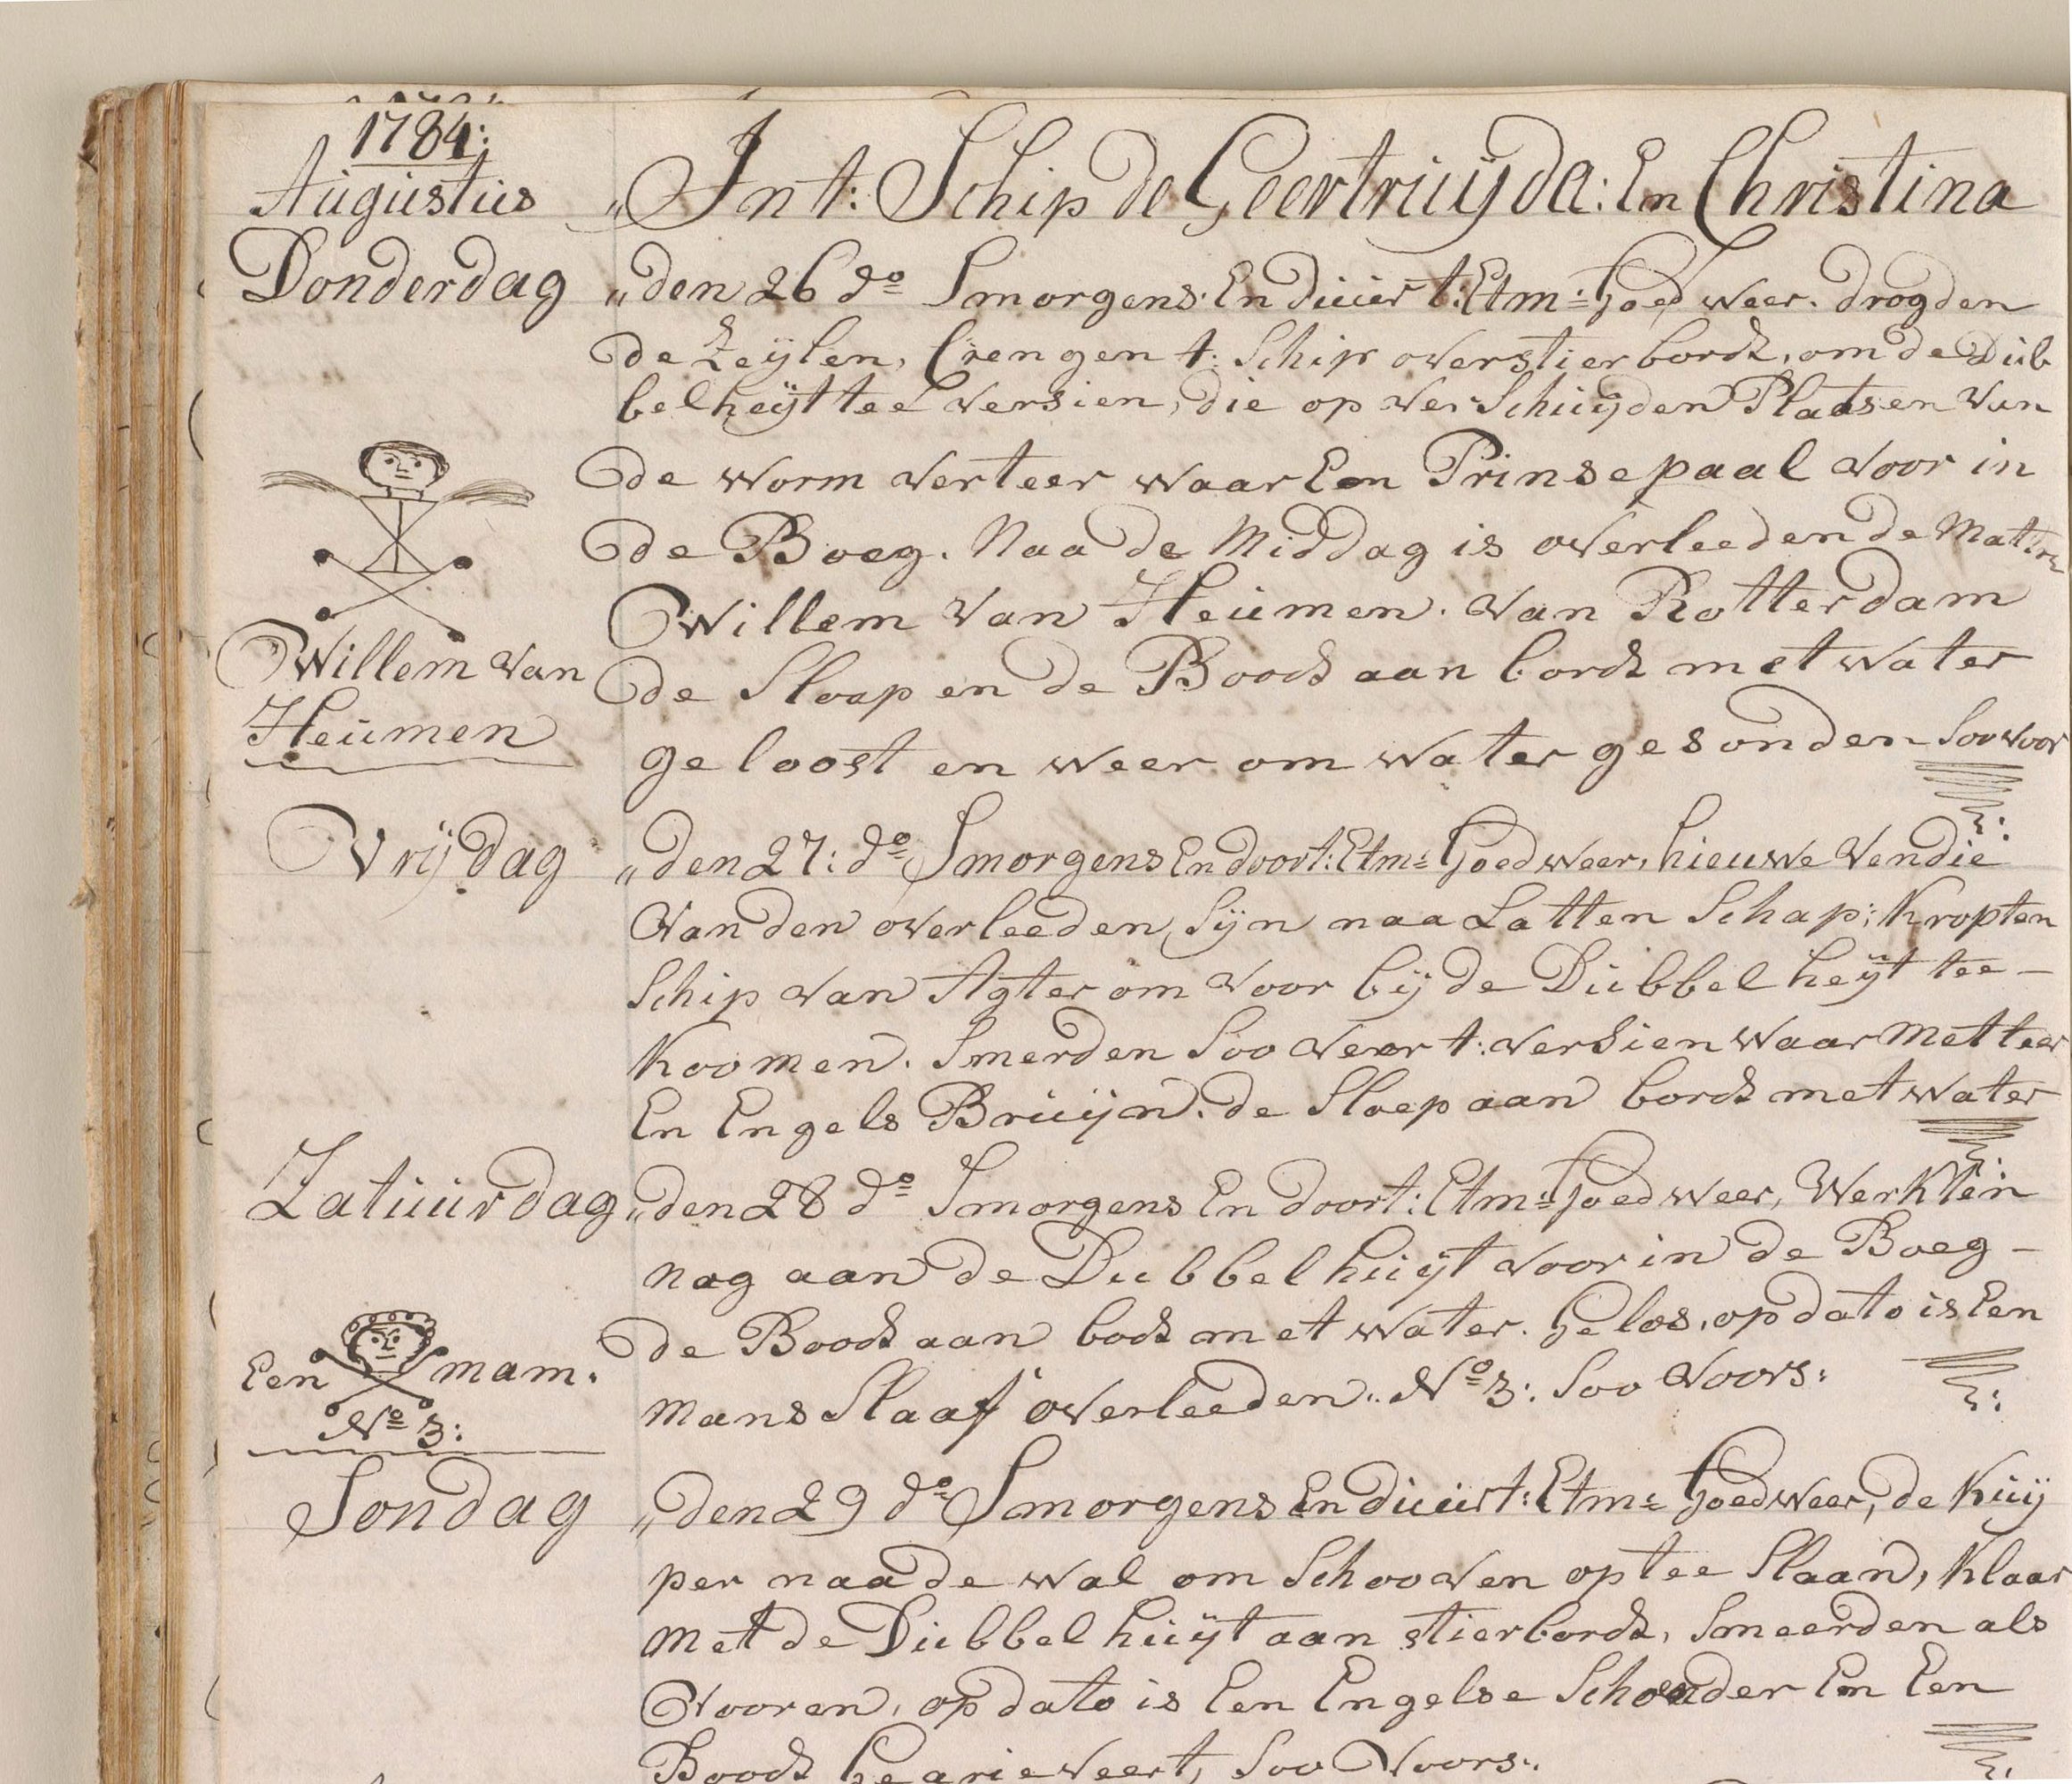 1784:
Augustus
„Int: Schip de Geertruÿda: En Christina
Donderdag
„den 26 do Smorgens: En duurt: Etm: Goed weer. drogden
de Zeÿlen, Crengen t: Schip overstierbordt, om de Dub
belheÿt tee versien, die op verSchuÿden Plaatsen van
de worm verteer waar Een Prinsepaal voor in
de Boeg. Naa de Middag is overleeden de Mattroos
Willem van Heumen. van Rotterdam
de Sloep en de Boodt aan bordt met water
ge loost en weer om water gesonden Soo voor
Willem van
Heumen
Vrÿdag
„den 27: do Smorgens En doort: Etm: Goed weer, hieuwe Vendie
van den overleeden, Sÿn naa Latten Schap; Kropten
Schip van Agter om voor bÿ de Dubbel heÿt tee –
Koomen. Smerden Soo veer t: versien waar Met teer
En Engels Bruÿn. de Sloep aan bordt met water
Zatuurdag
„den 28 do Smorgens En doort: Etm: Goed weer, Werkten
nog aan de Dubbel huÿt voor in de Boeg –
de Boodt aan bodt met water. Gelos, op dato is Een
mans Slaaf overleeden.. No 3: Soo Voors:
Een mam.
No 3:
Sondag
„den 29 do Smorgens En duurt: Etm: Goed weer, de Kuÿ
per naa de wal om Schooven op tee Slaan, Klaar
met de Dubbel huÿt aan stierbordt, Smeerden als
Vooren, op dato is Een Engelse Schoender En Een
Boodt Gearieveert, Soo Voors: